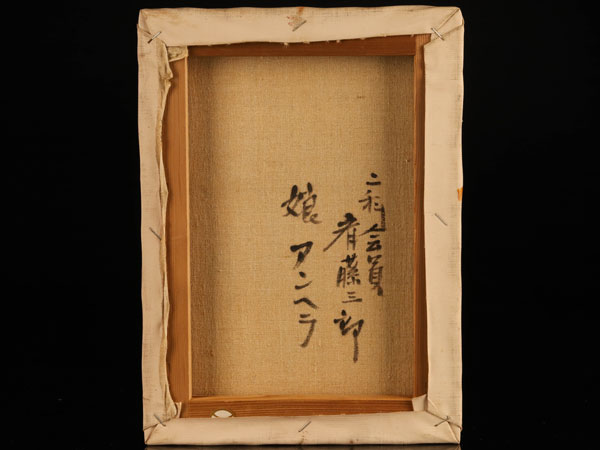 二科会員
斎藤三郎
娘 アンヘラ